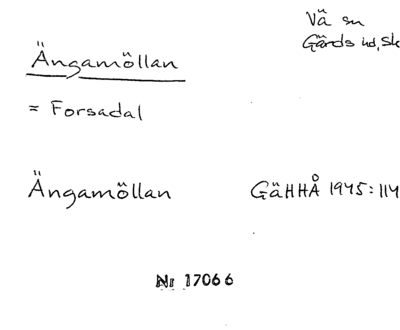 Vä sn
Gärds hd, Sk
Ängamöllan
= Forsadal
Ängamöllan GäHHÅ 1945:114
Nr 17066